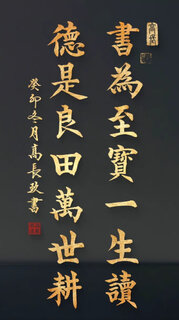 書為至寶一生讀
德是良田萬世耕
癸卯冬月高長玖書